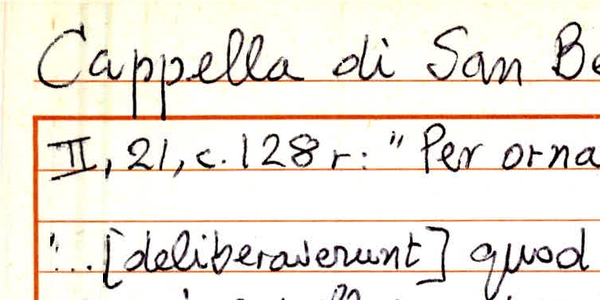 Cappella di San Be
II, 21, c. 128 r: "Per orna
"...[deliberaverunt] quod